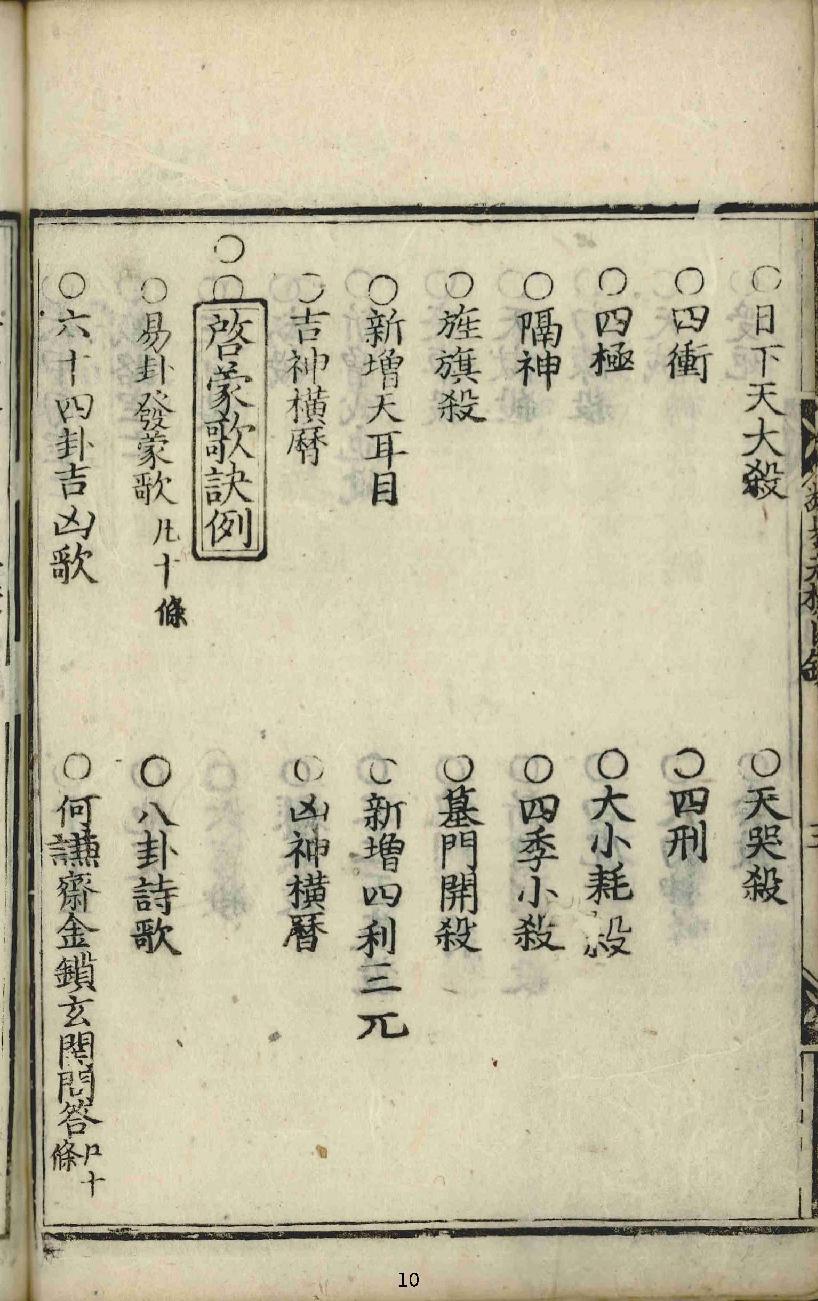 ○日下天大殺　○天哭殺
○四衝　○四刑
○四極　○大小耗殺
○隔神　○四季小殺
○旌旗殺　○墓門開殺
○新增天耳目　○新增四利三元
○吉神橫曆　○凶神橫曆
○○啓蒙歌訣例
○易卦發蒙歌 十條　○八卦詩歌
○六十四卦吉凶歌　○何謙齋金鎖玄関問答 十條
10